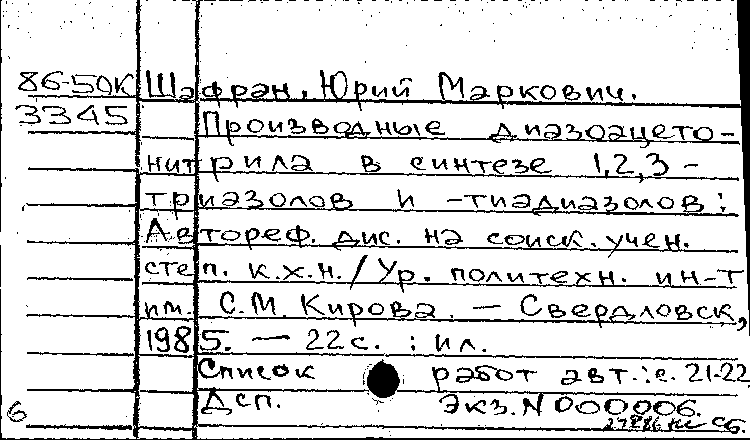 86-50К Шафран, Юрий Маркович.
3345 Производные диазоацето-
нитрила в синтезе 1,2,3 -
триазолов и -тиадиазолов:
Автореф. дис. на соиск. учен.
степ. к.х.н. / Ур. политехн. ин-т
им. С.М. Кирова. — Свердловск,
1985. — 22 с. : ил.
Список работ авт.: с. 21-22
Дсп. Экз. N 000006.
6